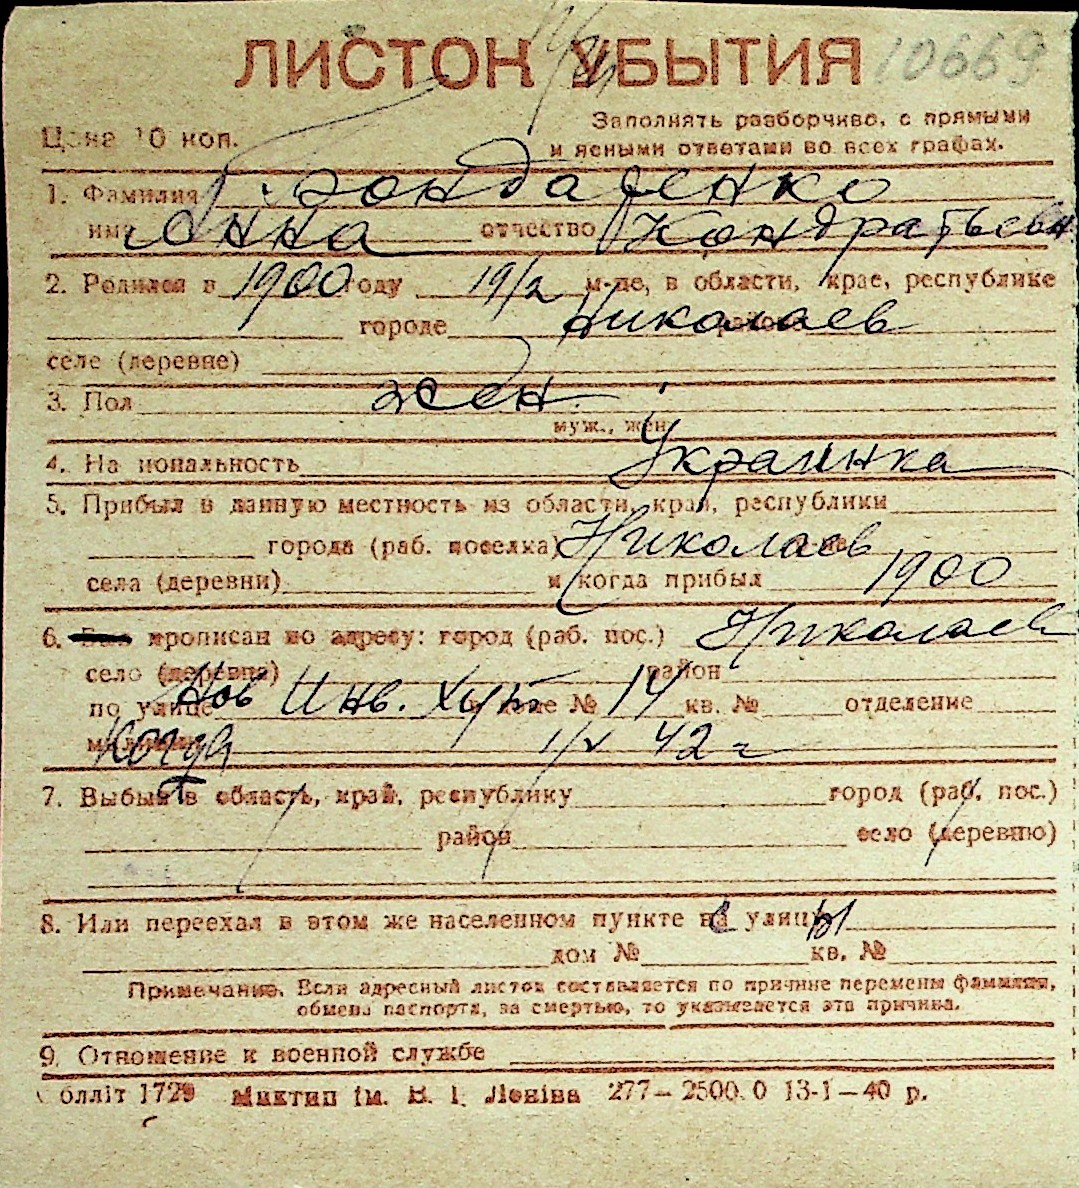 ЛИСТОК УБЫТИЯ 10669
Цена 10 коп.
Заполнять разборчиво, с прямыми
и ясными ответами во всех графах.
1. Фамилия Бондаренко
имя Анна отчество Кондратьевн
2. Родился в 1900 году 19/2 м-це, в области, крае, республике
городе Николаев районе
селе (деревне)
3. Пол жен.
муж., жен.
4. Национальность Украинка
5. Прибыл в данную местность из области, края, республики
города (раб. поселка) Николаев
села (деревни) и когда прибыл 1900
6. Был прописан по адресу: город (раб. пос.) Николаев
село (деревня) район
по улице Нов Инв. Хут в доме № 14 кв. № отделение
милиции Когда 1/V 42 г
7. Выбыл в область, край, республику город (раб. пос.)
район село (деревню)
8. Или переехал в этом же населенном пункте с улицы
дом № кв. №
Примечание. Если адресный листок составляется по причине перемены фамилии,
обмена паспорта, за смертью, то указывается эта причина.
9. Отношение к военной службе
Облліт 1729 Миктип ім. В. І. Леніна 277—2500.0 13-1—40 р.